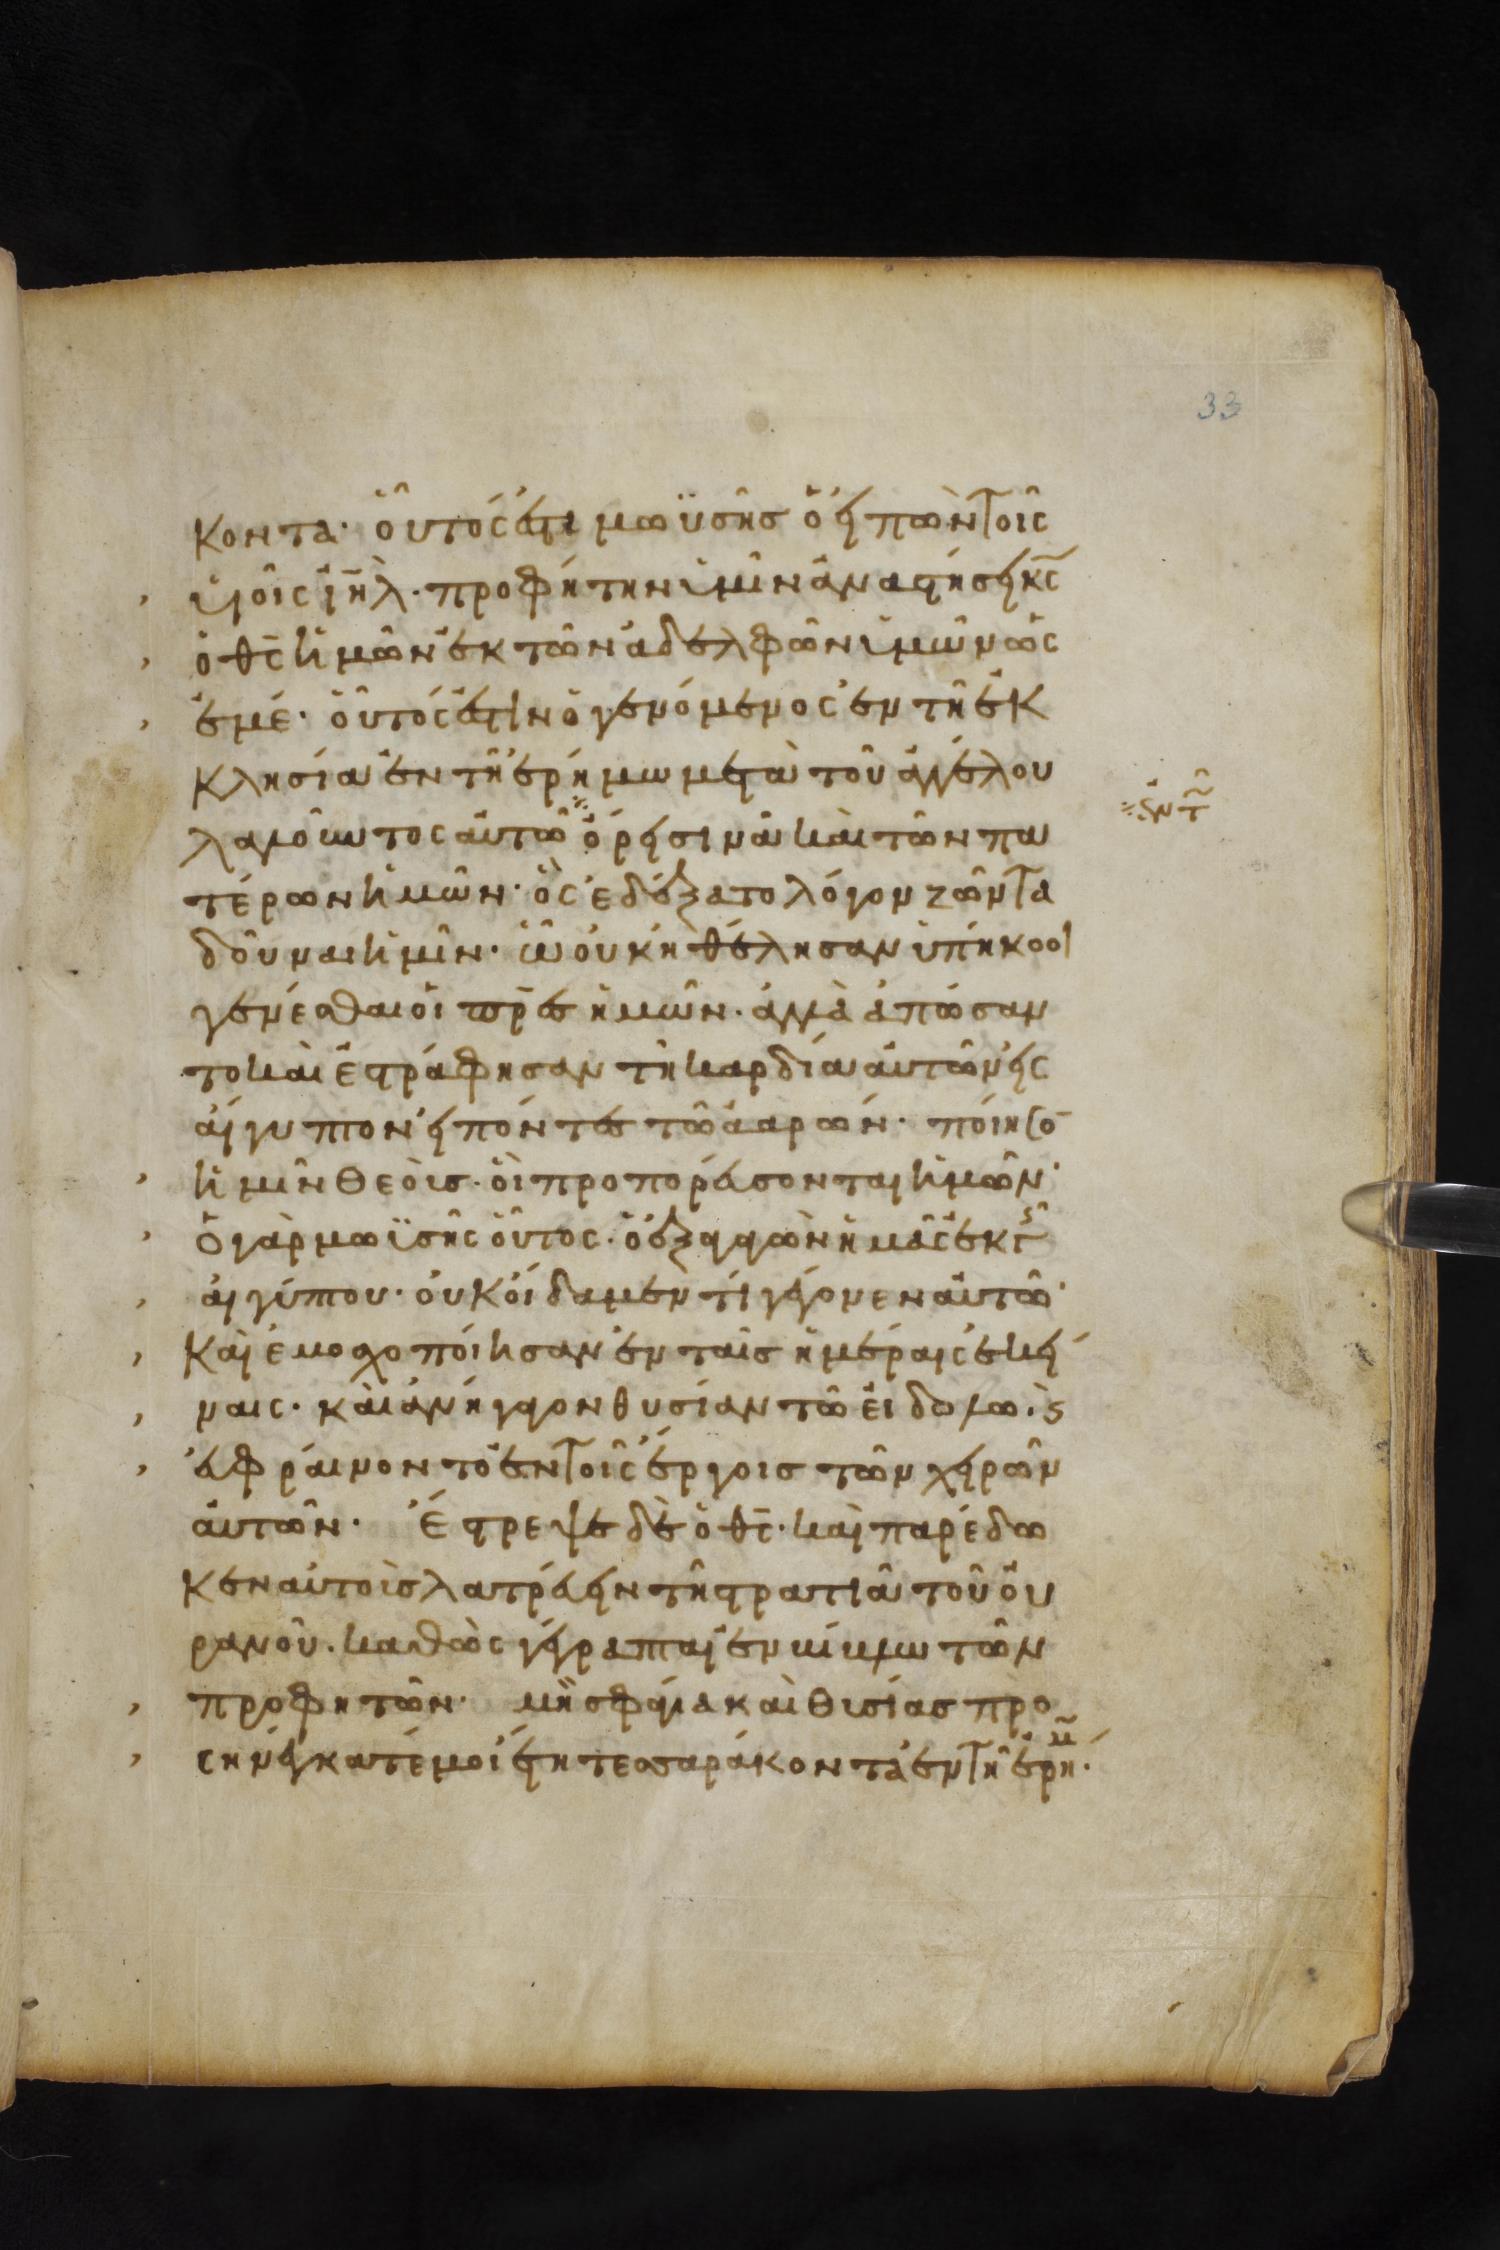 33
κοντα· οὗτός ἐστι μωϋσῆσ ὁ εἰπὼν τοῖς
υἱοῖς ιη̅λ· προφήτην ὑμῖν ἀναστήσει κ̅ς
ὁ θ̅ς ἡμῶν ἐκ τῶν ἀδελφῶν ὑμῶν ὡς
ἐμέ· οὗτός ἐστιν ὁ γενόμενος ἐν τῆ ἐκ
κλησία ἐν τῆ ἐρήμω μετὰ τοῦ ἀγγέλου
λαλοῦντος αὐτῶ ὄρει σινᾶ καὶ τῶν πα
ἐν τῶ
τέρων ἡμῶν· ὃς ἐδέξατο λόγον ζῶντα
δοῦναι ἡμῖν· ὧ οὐκ ἠθέλησαν ὑπήκοοι
γενέσθαι οἱ π̅ρ̅ες ἡμῶν· ἀλλὰ ἀπώσαν
το καὶ ἐστράφησαν τῆ καρδία αὐτῶν εἰς
αἴγυπτον εἰπόντες τῶ ἀαρών· ποίησο̅
ἡμῖν θεοὺσ· οἳ προπορεύσονται ἡμῶν·
ὁ γὰρ μωϊσῆς οὗτος· ὃ ἐξαγαγὼν ἡμᾶς ἐκ γῆς
αἰγύπτου· οὐκ οἴδαμεν τί γέγονεν αὐτῶ·
καὶ ἐμοσχοποίησαν ἐν ταῖσ ἡμέραις ἐκεί
ναις· καὶ ἀνήγαγον θυσίαν τῶ εἰδώλω· καὶ
εὐφραίνοντο ἐν τοῖς ἔργοισ τῶν χειρῶν
αὐτῶν· ἔστρεψε δὲ ὁ θ̅ς· καὶ παρέδω
κεν αὐτοὺσ λατρεύειν τῆ στρατιᾶ τοῦ οὐ
ρανοῦ· καθὼς γέγραπται ἐν βίβλω τῶν
προφητῶν· μὴ σφάγια καὶ θυσίας προ
σηνέγκατέ μοι ἔτη τεσσαράκοντα ἐν τῆ ἐρήμ·